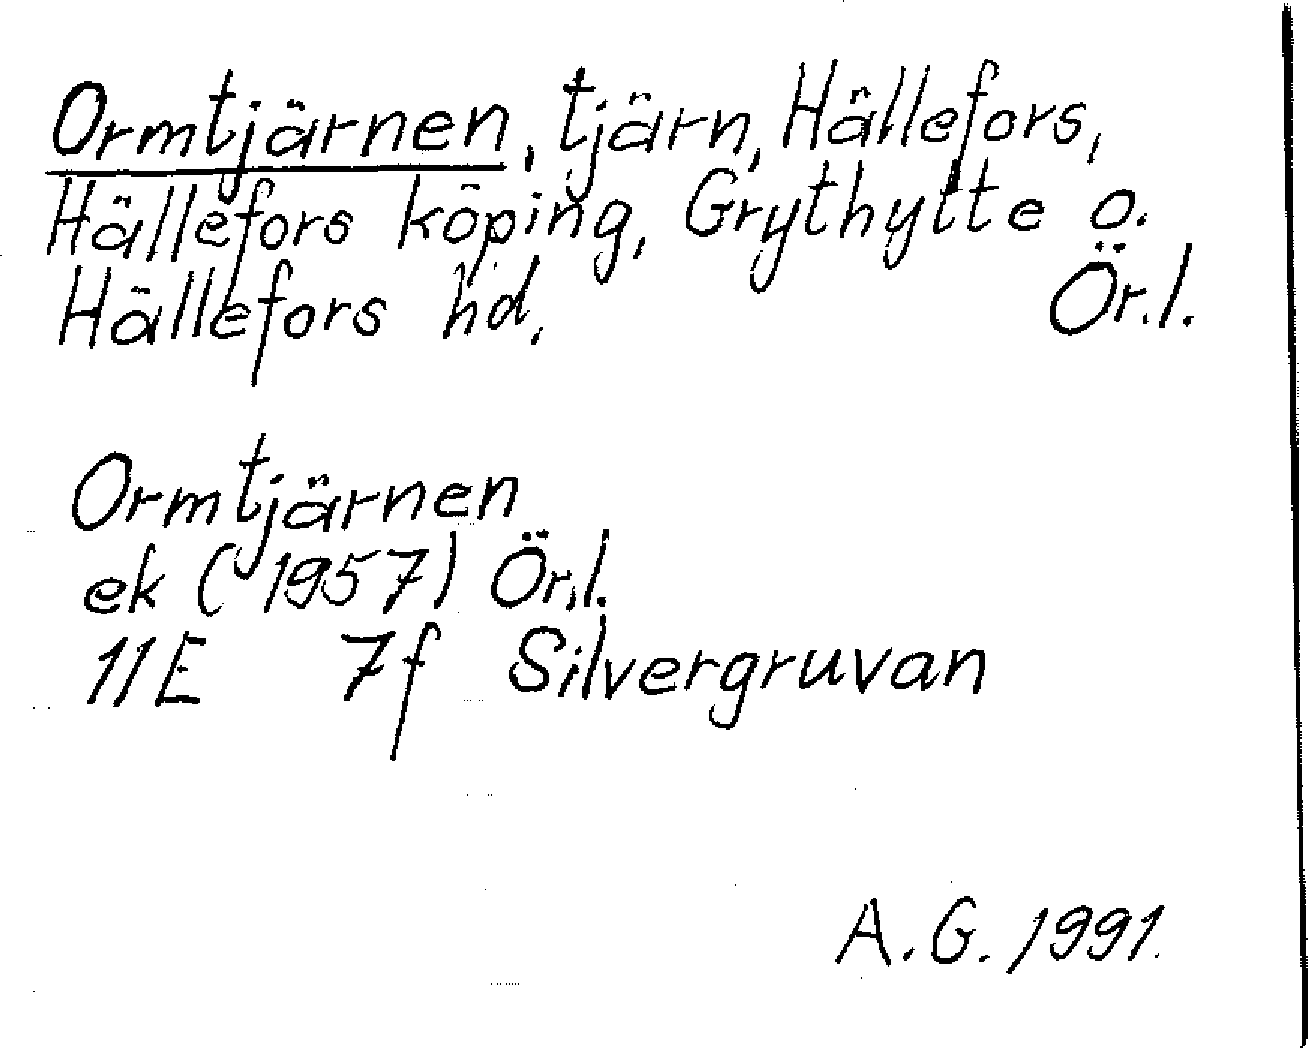 Ormtjärnen, tjärn, Hällefors,
Hällefors köping, Grythytte o.
Hällefors hd. Ör.l.
Ormtjärnen
ek (1957) Ör.l.
11E 7f Silvergruvan
A.G. 1991.